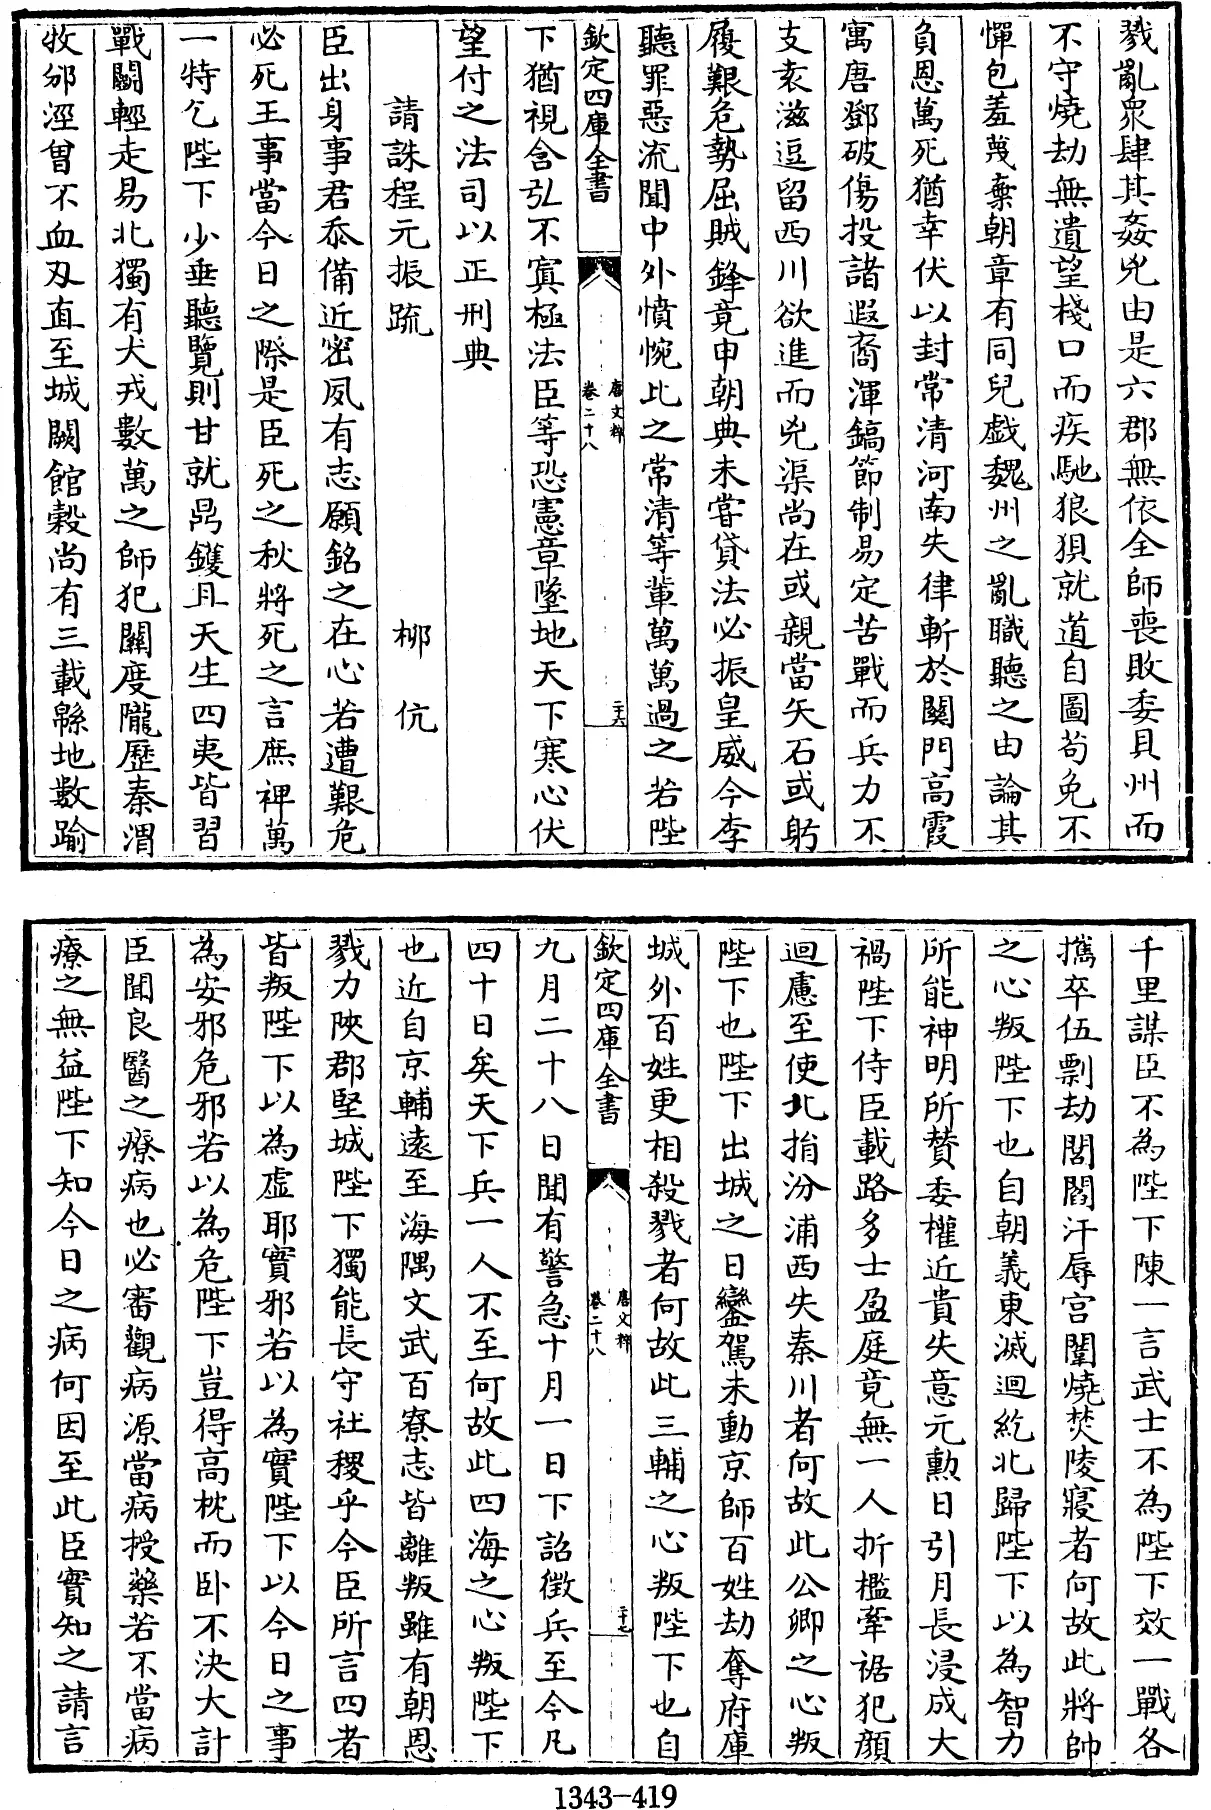 戮亂衆肆其姦兇由是六郡無依全師喪敗委貝州而
不守燒劫無遺望棧口而疾馳狼狽就道自圖苟免不
憚包羞蔑棄朝章有同兒戯魏州之亂職聽之由論其
負恩萬死猶幸伏以封常清河南失律斬於關門高霞
寓唐鄧破傷投諸遐裔渾鎬節制易定苦戰而兵力不
支袁滋逗留西川欲進而兇渠尚在或親當矢石或躬
履艱危勢屈賊鋒竟申朝典未甞貸法必振皇威今李
聽罪惡流聞中外憤惋比之常清等輩萬萬過之若陛
欽定四庫全書
唐文粹
卷二十八
二十六
下猶視含弘不寘極法臣等恐憲章墜地天下寒心伏
望付之法司以正刑典
請誅程元振疏
柳伉
臣出身事君忝備近密夙有志願銘之在心若遭艱危
必死王事當今日之際是臣死之秋將死之言庶裨萬
一特乞陛下少垂聽覽則甘就鼎鑊且天生四夷皆習
戰鬭輕走易北獨有犬戎數萬之師犯關度隴歴秦渭
牧邠涇曽不血刃直至城闕館穀尚有三載緜地數踰
千里謀臣不為陛下陳一言武士不為陛下效一戰各
擕卒伍剽劫閭閻汗辱宫闈燒焚陵寢者何故此將帥
之心叛陛下也自朝義東滅迴紇北歸陛下以為智力
所能神明所賛委權近貴失意元勲日引月長浸成大
禍陛下侍臣載路多士盈庭竟無一人折檻牽裾犯顔
迴慮至使北捐汾浦西失秦川者何故此公卿之心叛
陛下也陛下出城之日鑾駕未動京師百姓劫奪府庫
城外百姓更相殺戮者何故此三輔之心叛陛下也自
欽定四庫全書
唐文粹
卷二十八
二十七
九月二十八日聞有警急十月一日下詔徴兵至今凡
四十日矣天下兵一人不至何故此四海之心叛陛下
也近自京輔遠至海隅文武百寮志皆離叛雖有朝恩
戮力陜郡堅城陛下獨能長守社稷乎今臣所言四者
皆叛陛下以為虚耶實邪若以為實陛下以今日之事
為安邪危邪若以為危陛下豈得高枕而卧不決大計
臣聞良醫之療病也必審觀病源當病授藥若不當病
療之無益陛下知今日之病何因至此臣實知之請言
1343-419